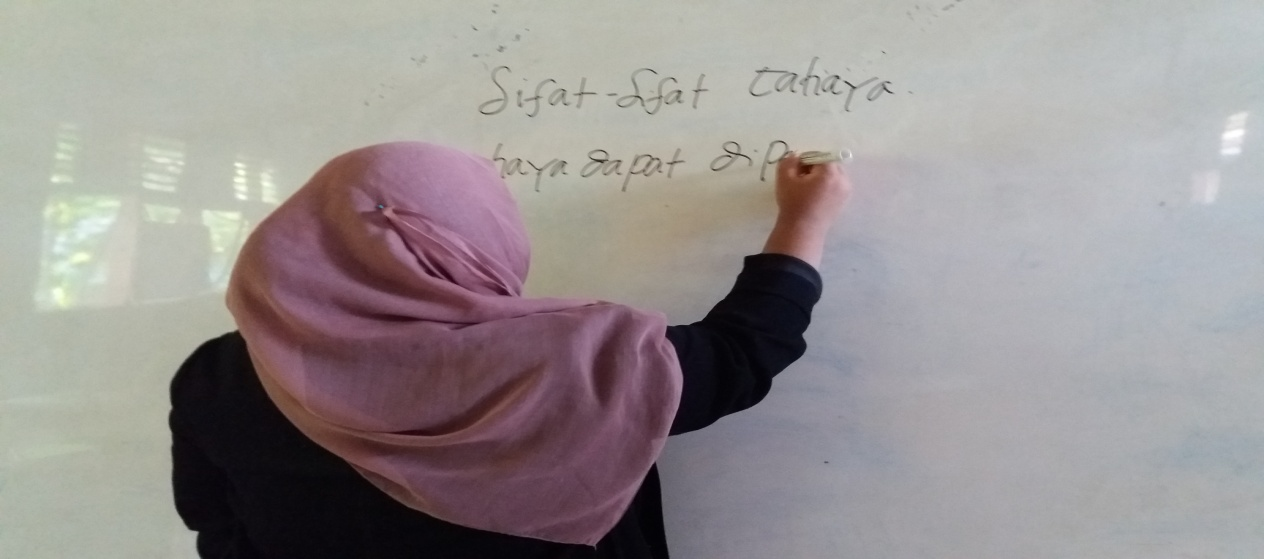 Sifat-Sifat Cahaya.
haya dapat dipa